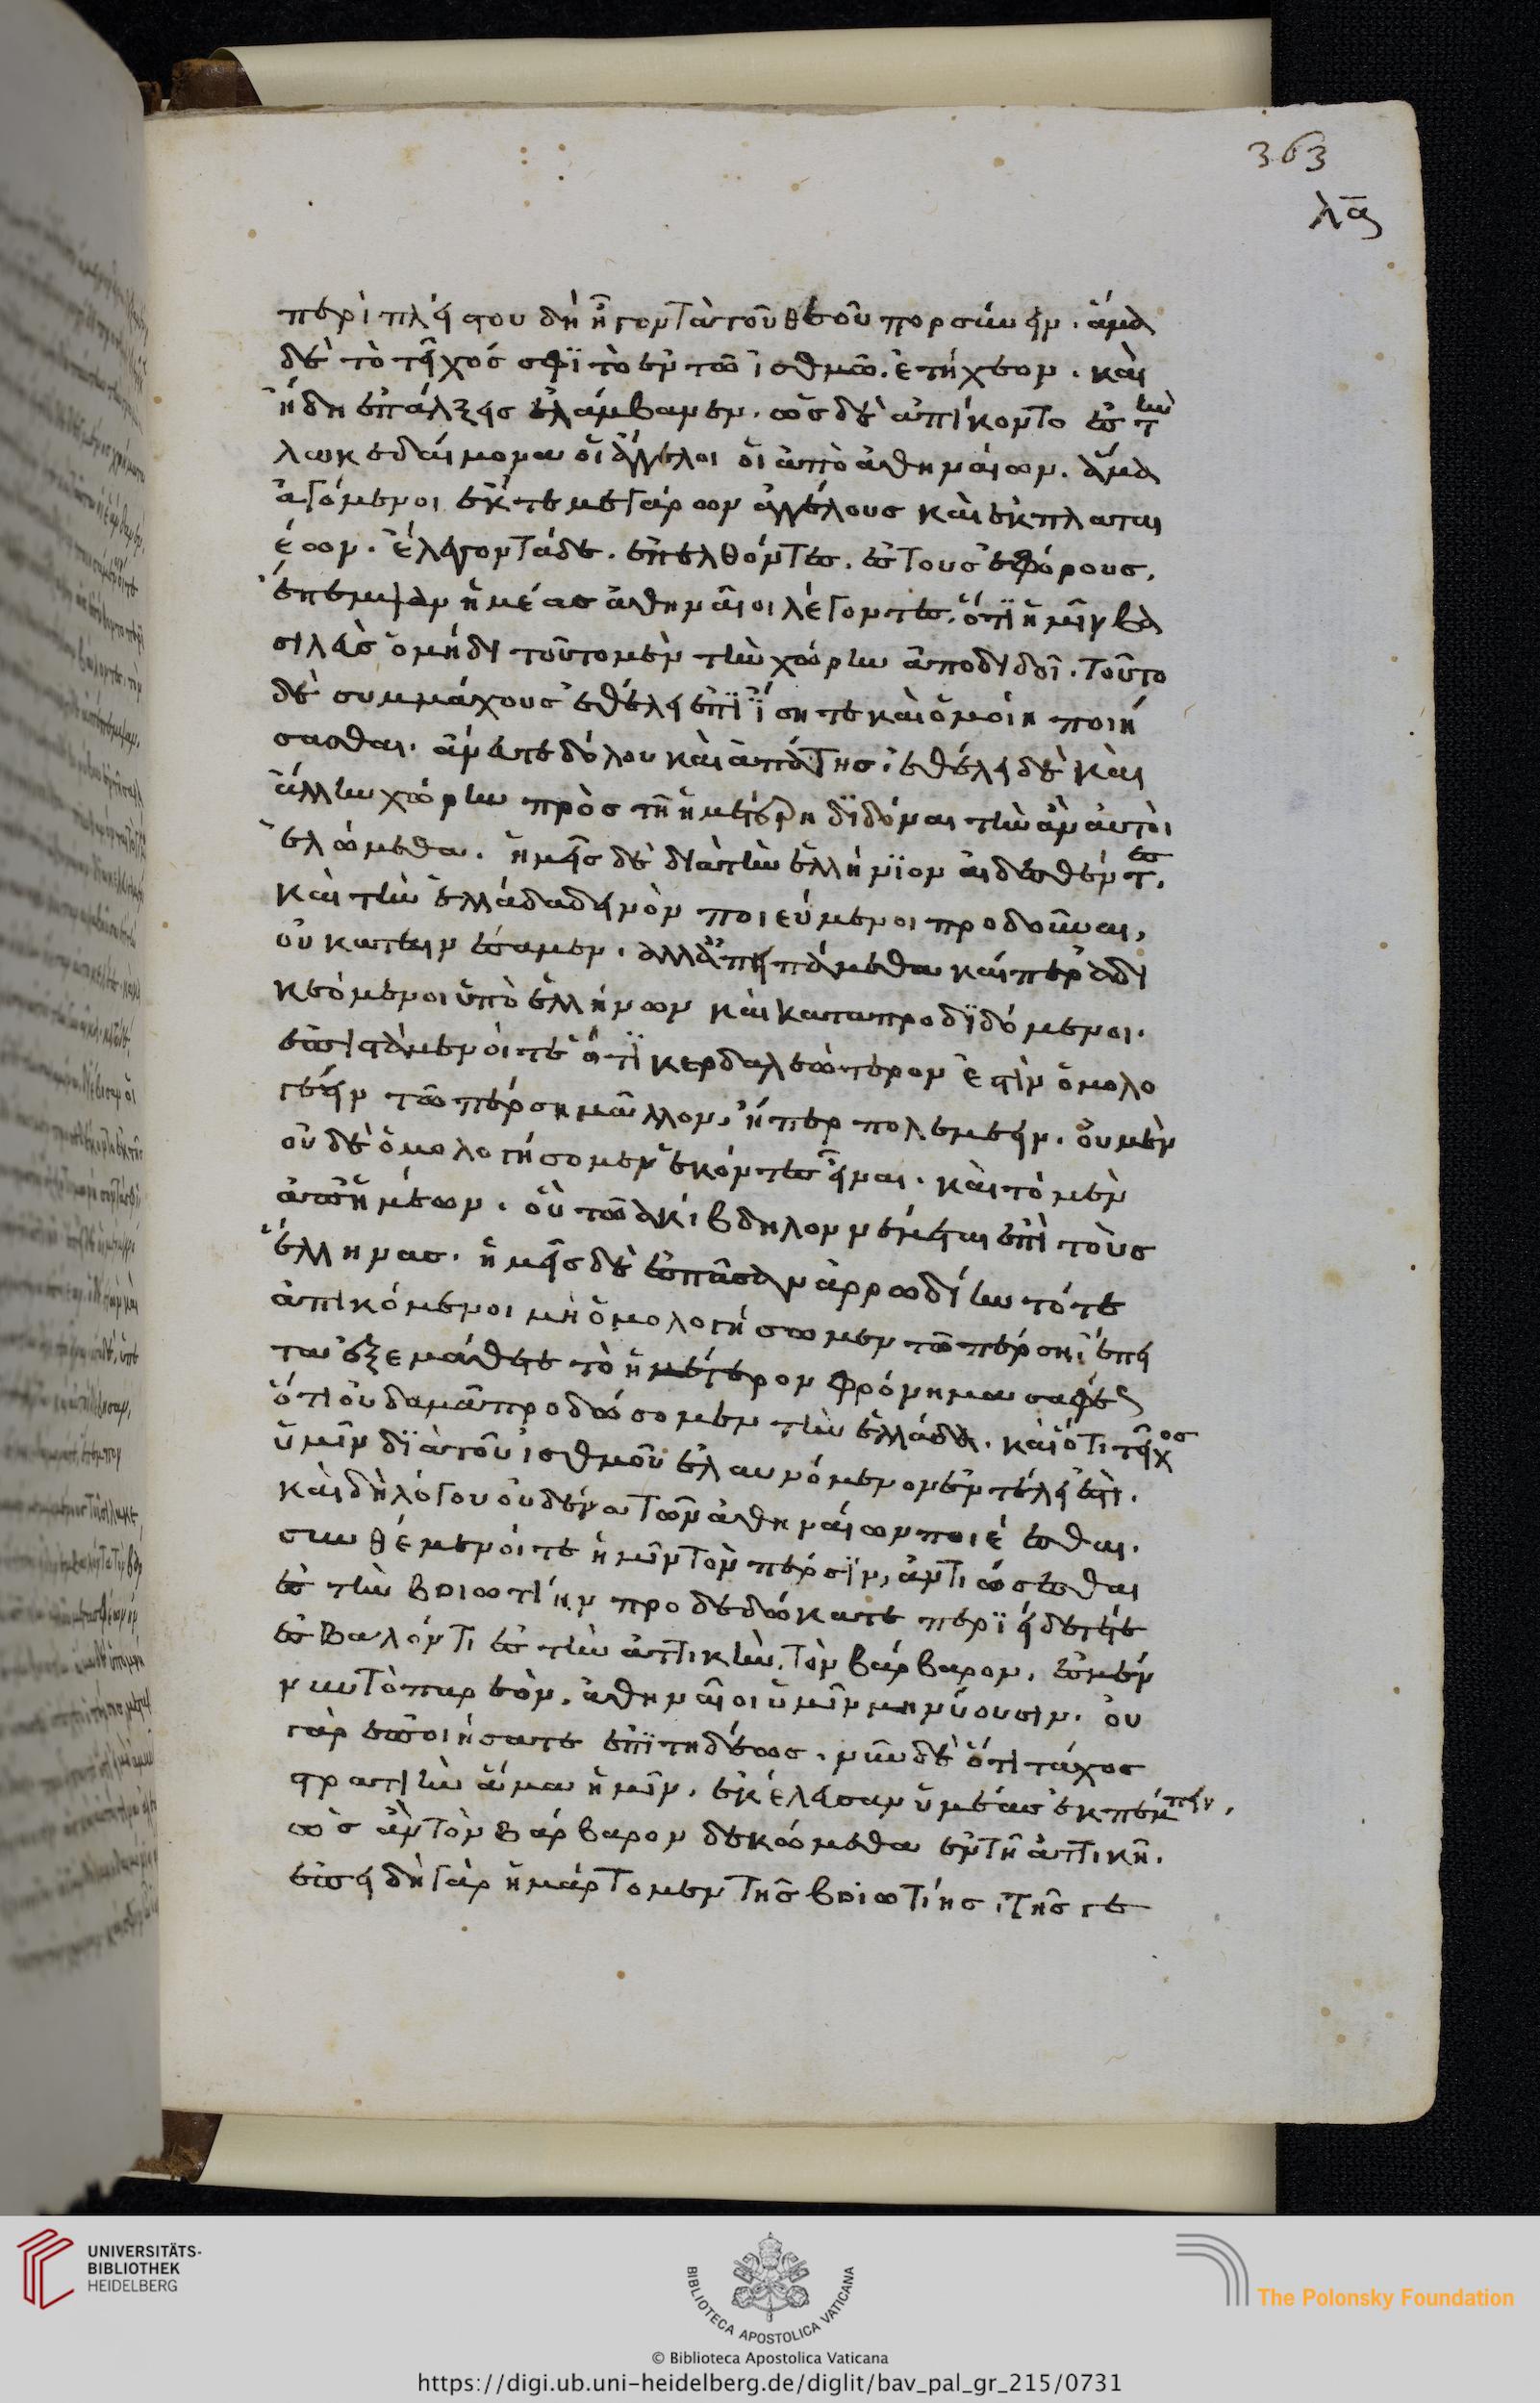 363
λᾱς
περὶ πλείστου δ' ἦγον τὰ τοῦ θεοῦ πορσύνειν. ἅμα
δὲ τὸ τεῖχός σφι τὸ ἐν τῶ ἰσθμῶ. ἐτείχεον. καὶ
ἤδη ἐπάλξεις ἐλάμβανεν. ὡς δὲ ἀπίκοντο ἐς τὴν
λακεδαίμονα οἱ ἄγγελοι οἱ ἀπὸ ἀθηναίων. ἅμα
ἀγόμενοι ἔκ τε μεγάρων ἀγγέλους καὶ ἐκ πλαται
έων. ἔλεγον τάδε. ἐπελθόντες. ἐς τοὺς ἐφόρους,
ἔπεμψαν ἡμέας ἀθηναῖοι λέγοντες, ὅτι ἡμῖν βα
σιλεὺς ὁ μήδων τοῦτο μὲν τὴν χώρην ἀποδιδοῖ. τοῦτο
δὲ συμμάχους ἐθέλει ἐπ' ἴση τε καὶ ὁμοίη ποιή
σασθαι. ἄνευ τε δόλου καὶ ἀπάτης. ἐθέλει δὲ καὶ
ἄλλην χώρην πρὸς τῆ ἡμετέρη διδόναι τὴν ἂν αὐτοὶ
ἑλώμεθα. ἡμεῖς δὲ δία τὸν ἑλλήνιον αἰδεσθέντες.
καὶ τὴν ἑλλάδα δεινὸν ποιεύμενοι προδοῦναι,
οὐ καταινέσαμεν. ἀλλ' ἀπειπάμεθα καί περ ἀδι
κεόμενοι ὑπὸ ἑλλήνων καὶ καταπροδιδόμενοι.
ἐπιστάμενοί τε ὅτι κερδαλεώτερον ἐστὶν ὁμολο
γέειν τῶ πέρση μᾶλλον, ἤπερ πολεμέειν. οὐ μὲν
οὐδὲ ὁμολογήσομεν ἑκόντες εἶναι. καὶ τὸ μὲν
ἀπ' ἡμέων. οὕτω ἀκίβδηλον νέμεται ἐπὶ τοὺς
ἕλληνας. ἡμεῖς δὲ ἐς πᾶσαν ἀρρωδίην τότε
ἀπικόμενοι μὴ ὁμολογήσωμεν τῶ πέρση, ἐπεί
τε ἐξεμάθετε τὸ ἡμέτερον φρόνημα σαφέως
ὅτι οὐδαμᾶ προδώσομεν τὴν ἑλλάδα. καὶ ὅτι τεῖχος
ὑμῖν διὰ τοῦ ἰσθμοῦ ἐλαυνόμενον ἐν τέλει ἐστί.
καὶ δὴ λόγον οὐδένα τῶν ἀθηναίων ποιέεσθαι.
συνθέμενοί τε ἡμῖν τὸν πέρσην, ἀντιώσεσθαι
ἐς τὴν βοιωτίην προδεδώκατε περιείδετέ τε
ἐσβαλόντι ἐς τὴν ἀττικὴν. τὸν βάρβαρον. ἐς μέν
νυν τὸ παρεὸν. ἀθηναῖοι ὑμῖν μηνύουσιν. οὐ
γὰρ ἐποιήσατε ἐπιτηδέως. νῦν δὲ ὅτι τάχος
στρατιὴν ἅμα ἡμῖν. ἐκέλευσαν ὑμέας ἐκπέμπειν,
ὡς ἂν τὸν βάρβαρον δεκώμεθα ἐν τῆ ἀττικῆ.
ἐπειδὴ γὰρ ἡμάρτομεν τῆς βοιωτίης, τῆς γε
UNIVERSITÄTS-
BIBLIOTHEK
HEIDELBERG
BIBLIOTECA APOSTOLICA VATICANA
© Biblioteca Apostolica Vaticana
The Polonsky Foundation
https://digi.ub.uni-heidelberg.de/diglit/bav_pal_gr_215/0731